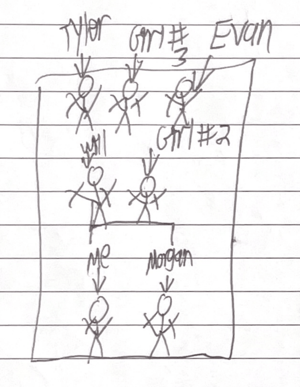 Tyler Girl # 3 Evan
Will Girl #2
Me Morgan